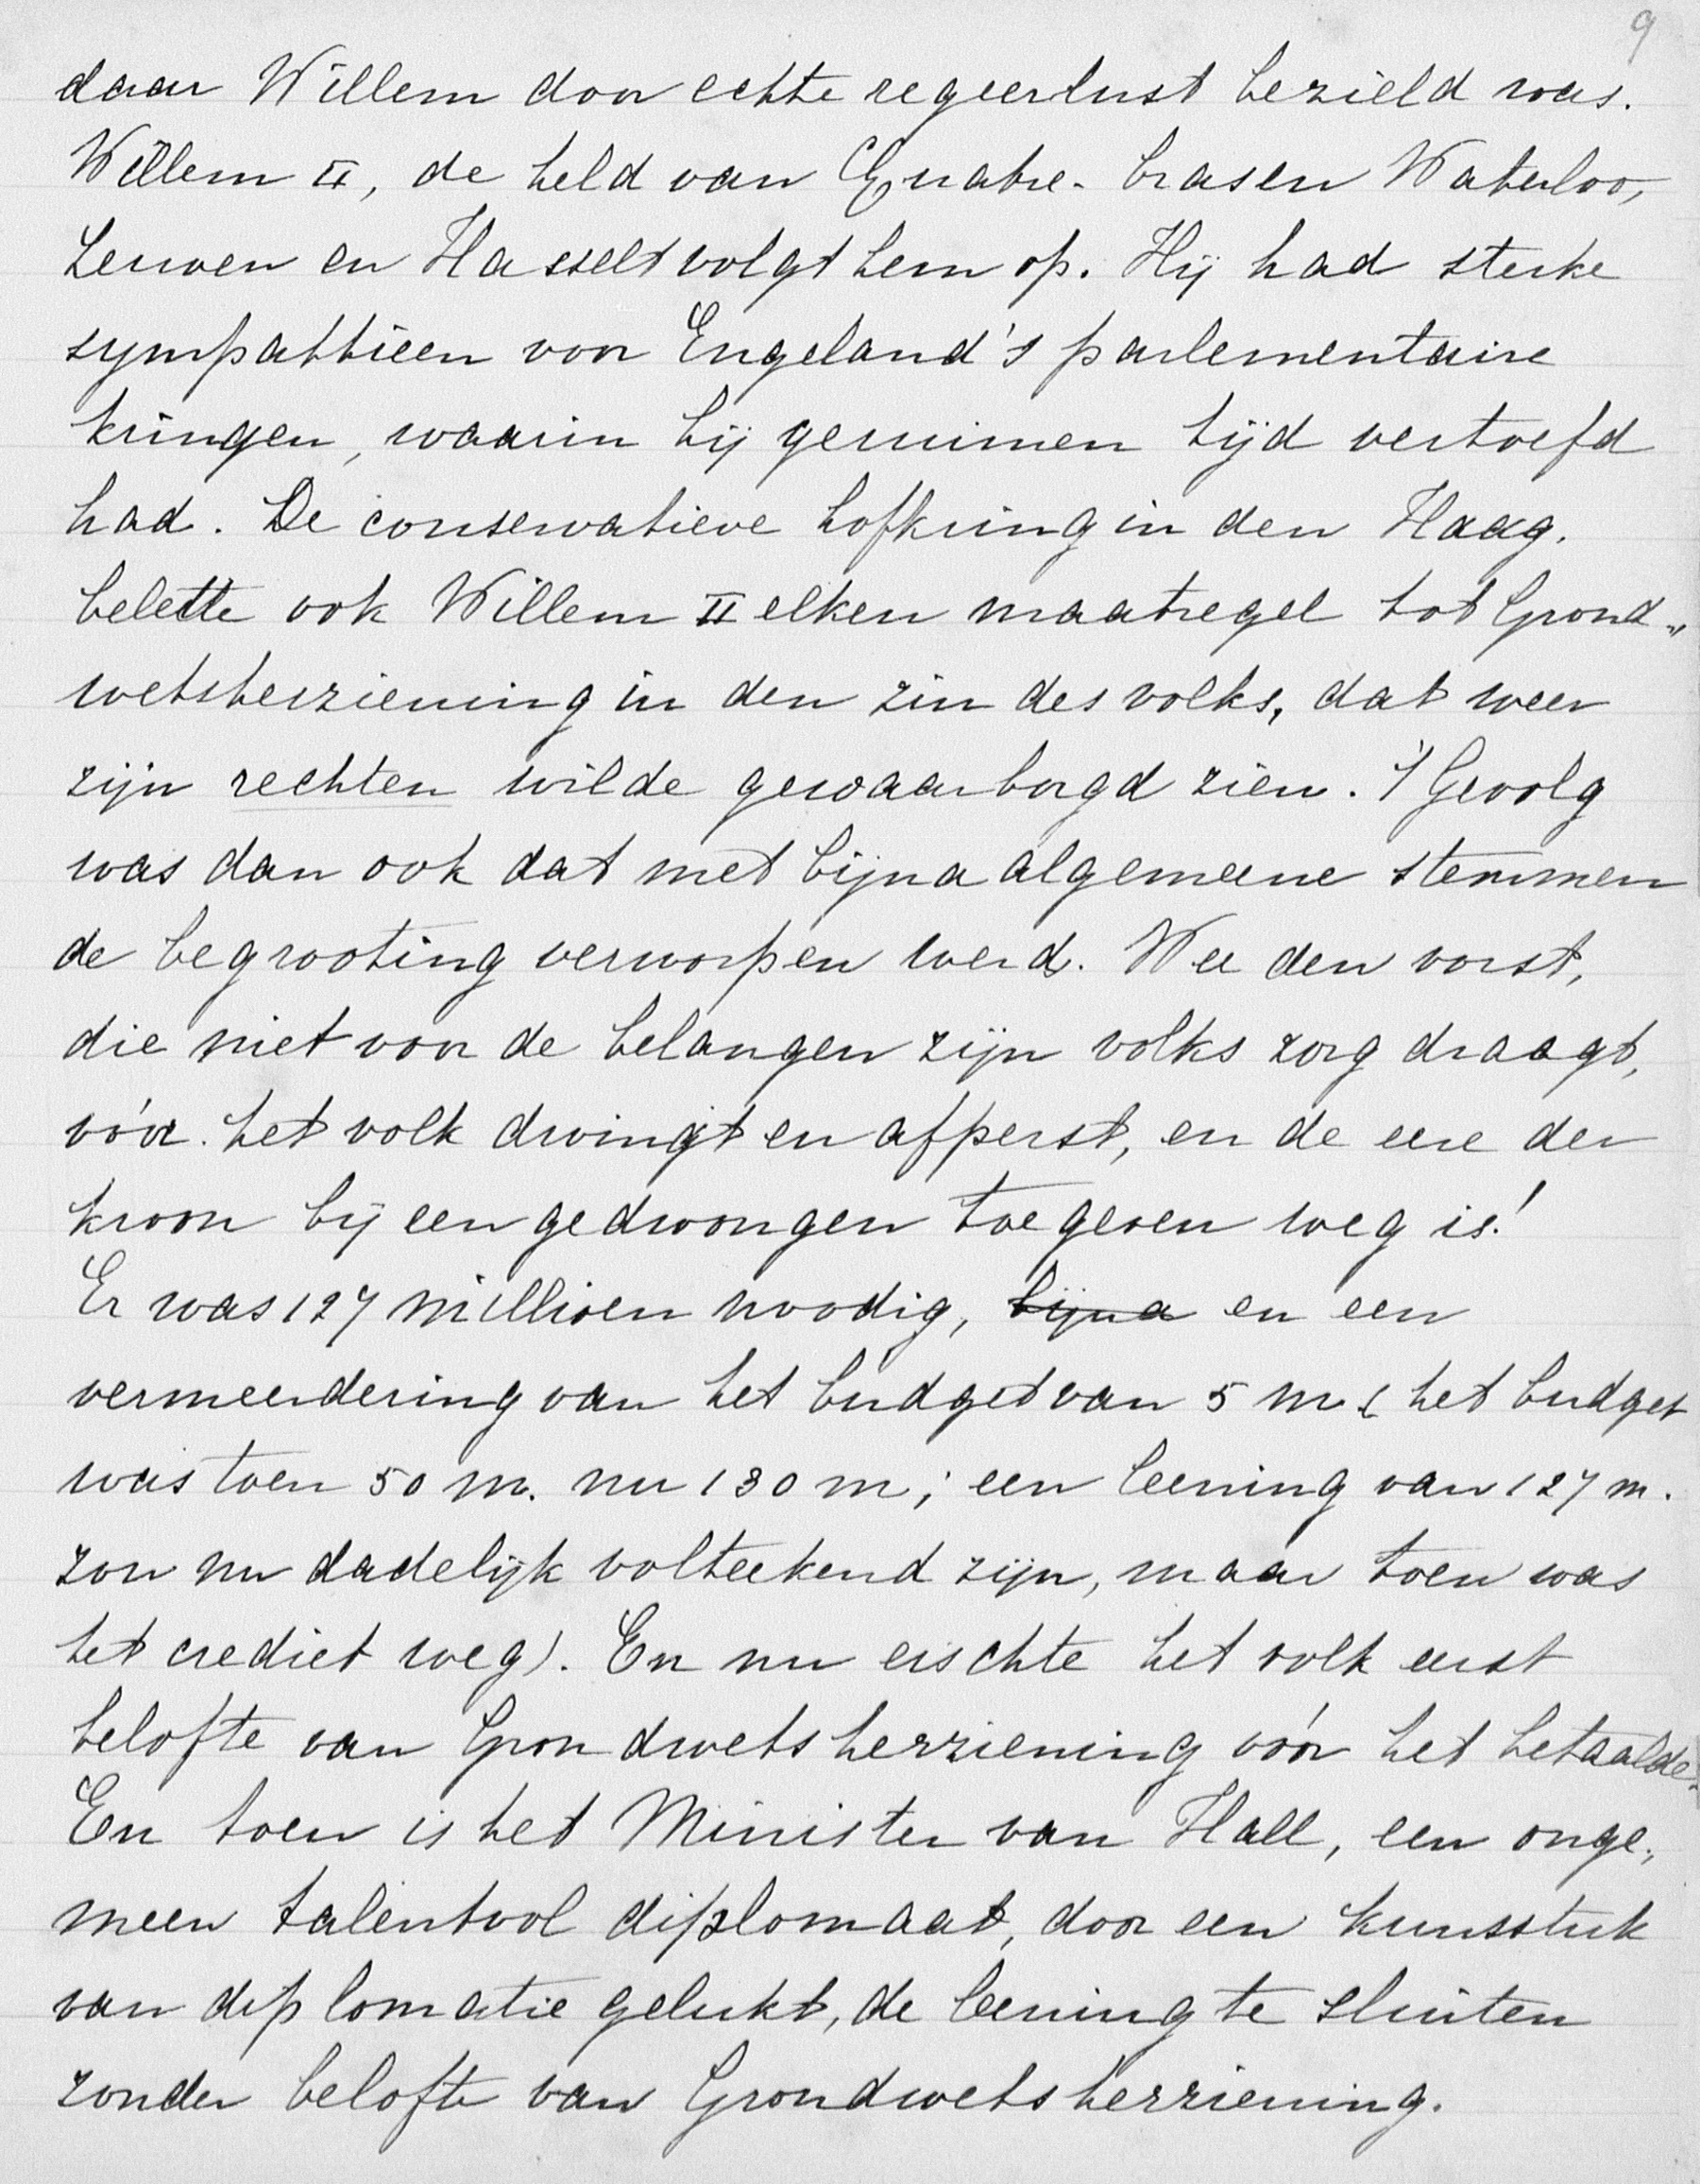 9
daar Willem door echte regeerlust bezield was.
Willem II, de held van Quatre-brasen Waterloo,
Leuven en Hasselt volgt hem op. Hij had sterke
sympathieen voor Engeland's parlementaire
kringen, waarin hij geruimen tijd vertoefd
had. De conservatieve hofkring in den Haag.
belette ook Willem II elken maatregel tot Grond„
wetsherziening in den zin des volks, dat weer
zijn rechten wilde gewaarborgd zien. 't Gevolg
was dan ook dat met bijna algemeene stemmen
de begrooting verworpen werd. Wee den vorst,
die niet voor de belangen zijn volks zorg draagt,
vóór het volk dwingt en afperst, en de eere der
kroon bij een gedwongen toegeven weg is!
Er was 127 millioen noodig, bijna en een
vermeerdering van het budget van 5 m. (het budget
was toen 50 m. nu 130 m; een leening van 127 m.
zou nu dadelijk volteekend zijn, maar toen was
het crediet weg). En nu eischte het volk eerst
belofte van Grondwetsherziening vóór het betaalde.
En toen is het Minister van Hall, een onge„
meen talentvol diplomaat, door een kunsstuk
van diplomatie gelukt, de leening te sluiten
zonder belofte van Grondwetsherziening.